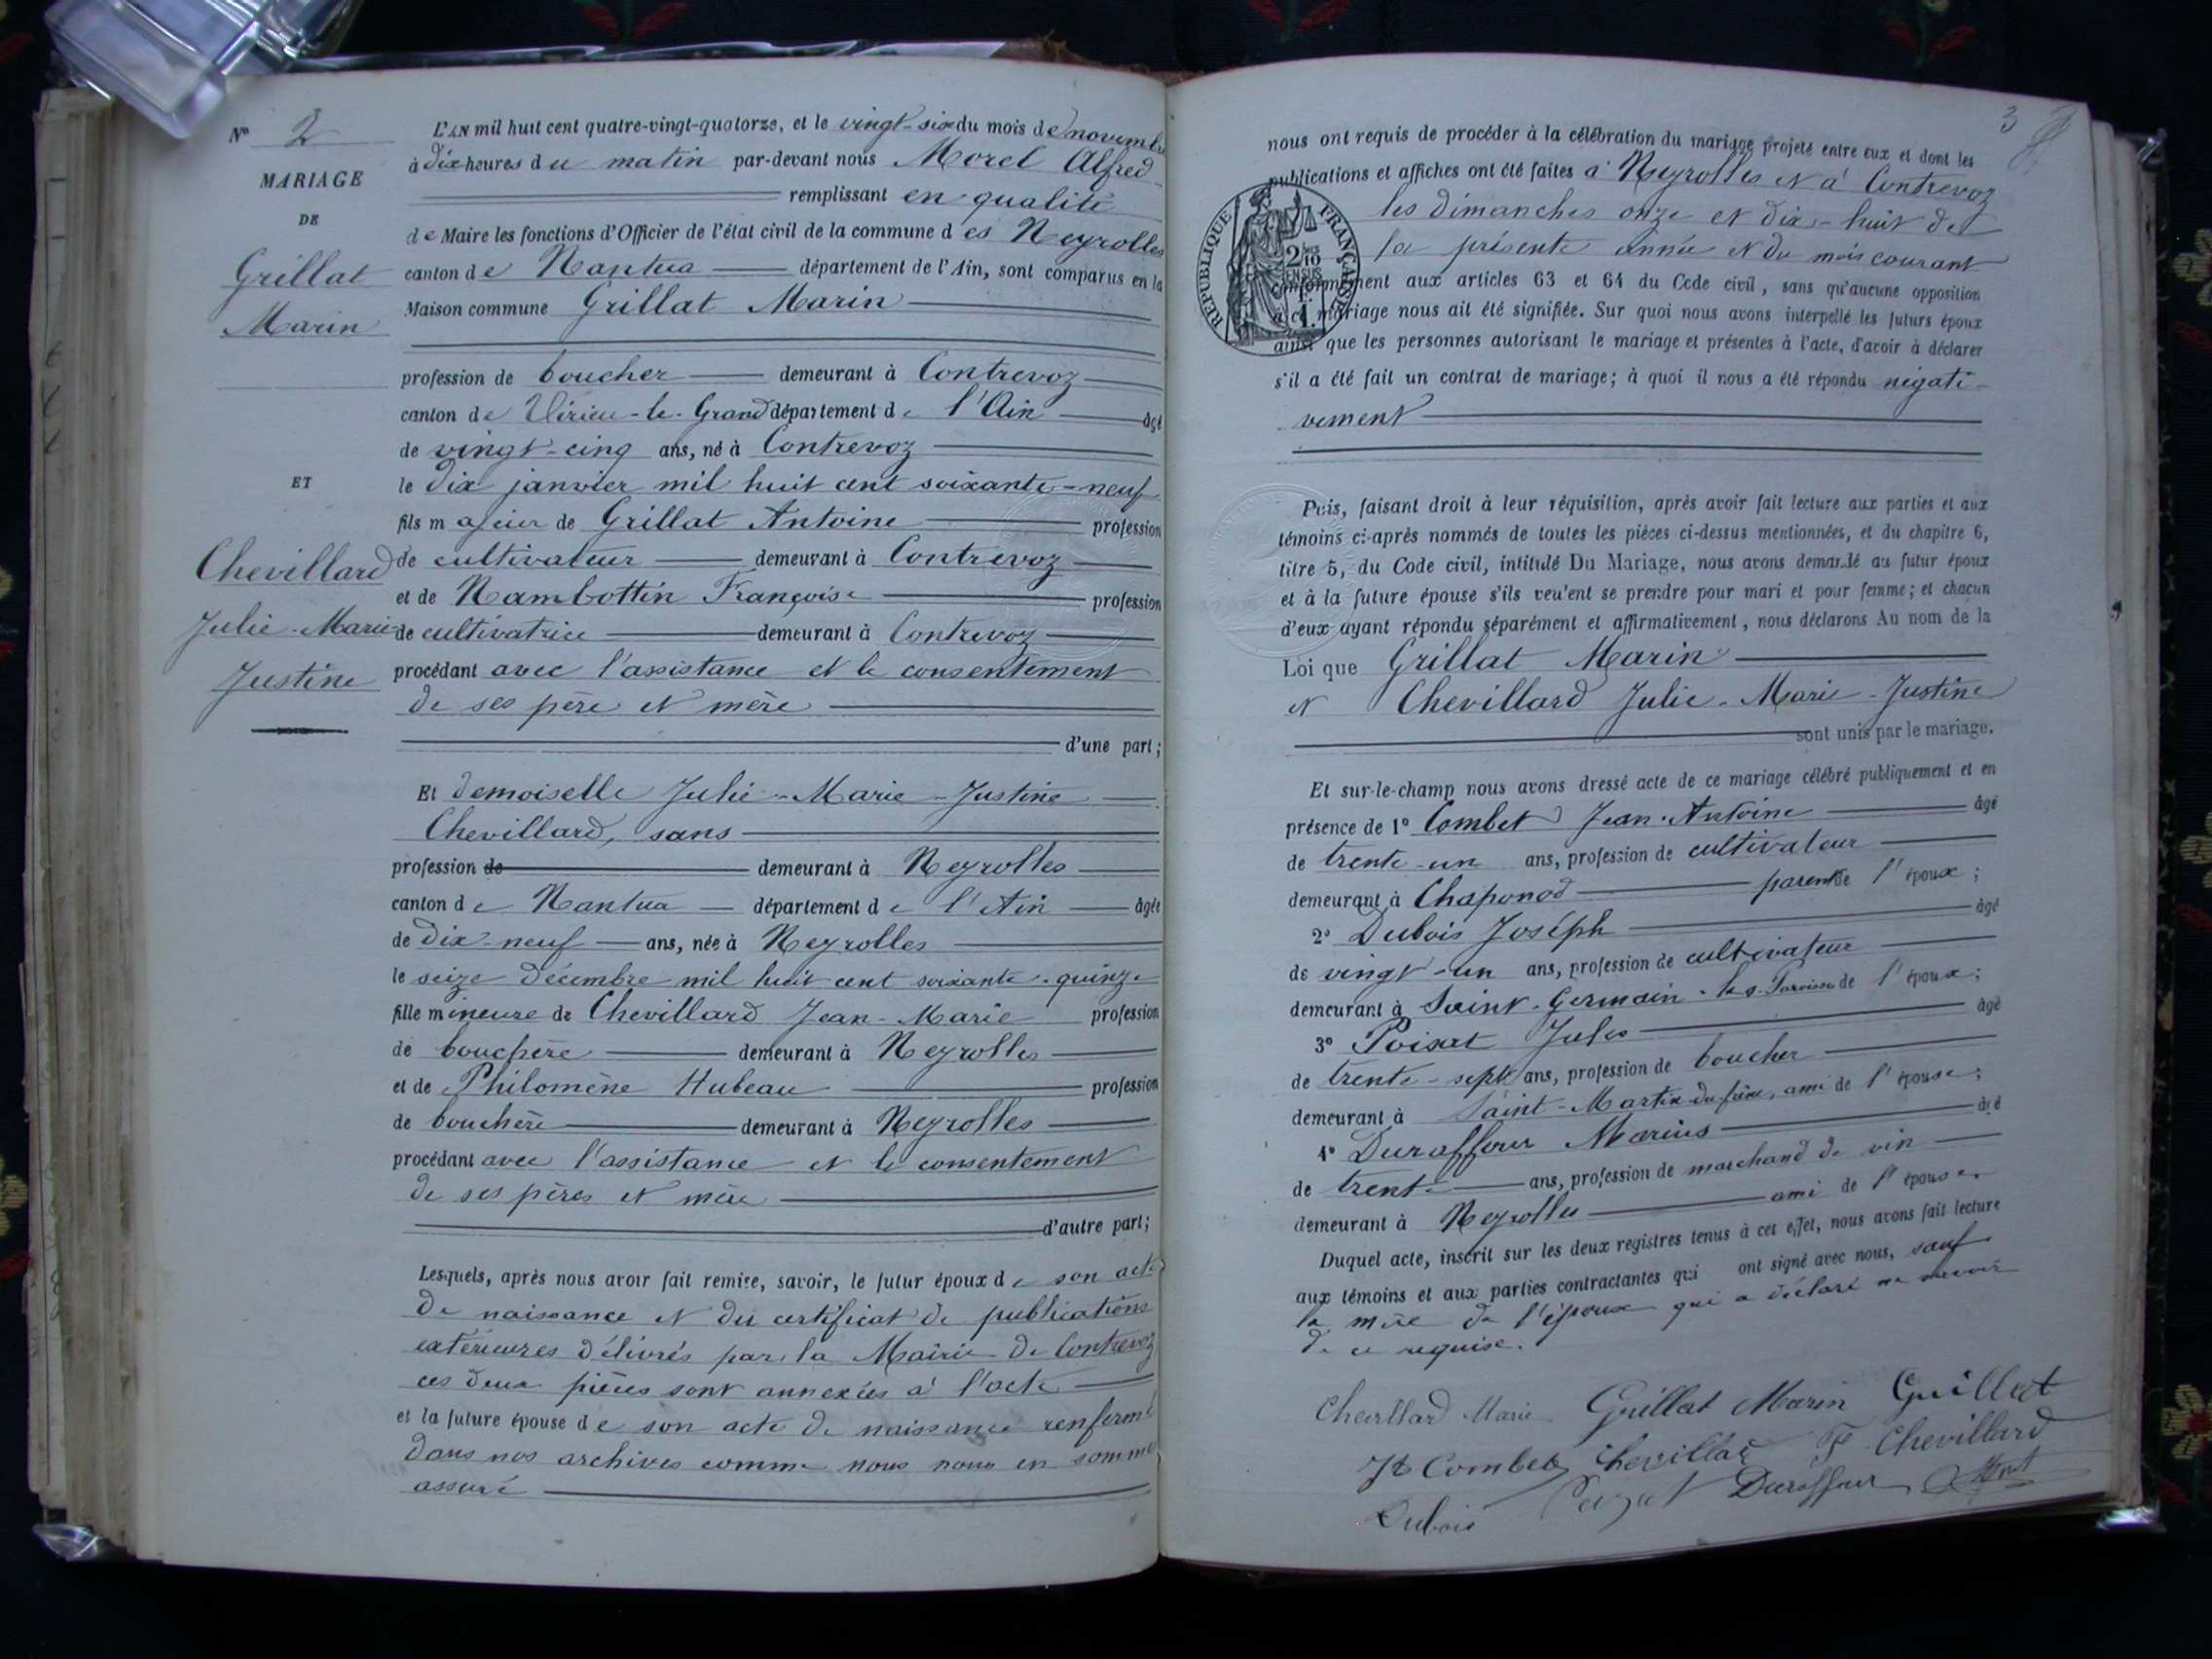 N° 2
MARIAGE
DE
Grillat
Marin
ET
Chevillard
Julie-Marie
Justine
L'AN mil huit cent quatre-vingt-quatorze, et le vingt-six du mois de novembre
à dix heures du matin par-devant nous Morel Alfred
remplissant en qualité
de Maire les fonctions d'Officier de l'état civil de la commune des Neyrolles
canton de Nantua département de l'Ain, sont comparus en la
Maison commune Grillat Marin
profession de boucher demeurant à Contrevoz
canton de Virieu-le-Grand département de l'Ain âgé
de vingt-cinq ans, né à Contrevoz
le dix janvier mil huit cent soixante-neuf
fils majeur de Grillat Antoine profession
de cultivateur demeurant à Contrevoz
et de Nambottin Françoise profession
de cultivatrice demeurant à Contrevoz
procédant avec l'assistance et le consentement
de ses père et mère
d'une part;
Et demoiselle Julie-Marie-Justine
Chevillard, sans
profession de demeurant à Neyrolles
canton de Nantua département de l'Ain âgée
de dix-neuf ans, née à Neyrolles
le seize décembre mil huit cent soixante-quinze
fille mineure de Chevillard Jean-Marie profession
de bouchère demeurant à Neyrolles
et de Philomène Hubeau profession
de bouchère demeurant à Neyrolles
procédant avec l'assistance et le consentement
de ses pères et mère
d'autre part;
Lesquels, après nous avoir fait remise, savoir, le futur époux de son acte
de naissance et du certificat de publications
extérieures délivrés par la Mairie de Contrevoz
ces deux pièces sont annexées à l'acte
et la future épouse de son acte de naissance renfermé
dans nos archives comme nous nous en sommes
assuré
3
nous ont requis de procéder à la célébration du mariage projeté entre eux et dont les
publications et affiches ont été faites à Neyrolles et à Contrevoz
les dimanches onze et dix-huit de
la présente année et du mois courant
RÉPUBLIQUE FRANÇAISE
2/10 EN SUS
conformément aux articles 63 et 64 du Code civil, sans qu'aucune opposition
à ce mariage nous ait été signifiée. Sur quoi nous avons interpellé les futurs époux
ainsi que les personnes autorisant le mariage et présentes à l'acte, d'avoir à déclarer
s'il a été fait un contrat de mariage; à quoi il nous a été répondu négati-
vement
Puis, faisant droit à leur réquisition, après avoir fait lecture aux parties et aux
témoins ci-après nommés de toutes les pièces ci-dessus mentionnées, et du chapitre 6,
titre 5, du Code civil, intitulé Du Mariage, nous avons demandé au futur époux
et à la future épouse s'ils veulent se prendre pour mari et pour femme; et chacun
d'eux ayant répondu séparément et affirmativement, nous déclarons Au nom de la
Loi que Grillat Marin
et Chevillard Julie-Marie-Justine
sont unis par le mariage.
Et sur-le-champ nous avons dressé acte de ce mariage célébré publiquement et en
présence de 1° Combet Jean-Antoine âgé
de trente-un ans, profession de cultivateur
demeurant à Chaponod parent de l'époux;
2° Dubois Joséph âgé
de vingt-un ans, profession de cultivateur
demeurant à Saint-Germain-les-Paroisses de l'époux;
3° Poisat Jules âgé
de trente-sept ans, profession de boucher
demeurant à Saint-Martin du frêne, ami de l'épouse;
4° Duraffour Marius âgé
de trente ans, profession de marchand de vin
demeurant à Neyrolles ami de l'épouse.
Duquel acte, inscrit sur les deux registres tenus à cet effet, nous avons fait lecture
aux témoins et aux parties contractantes qui ont signé avec nous, sauf
la mère de l'époux qui a déclaré ne savoir
de ce requise.
Chevillard Marie Grillat Marin Grillat
Jt Combet Chevillard F Chevillard
Dubois Duraffour Morel